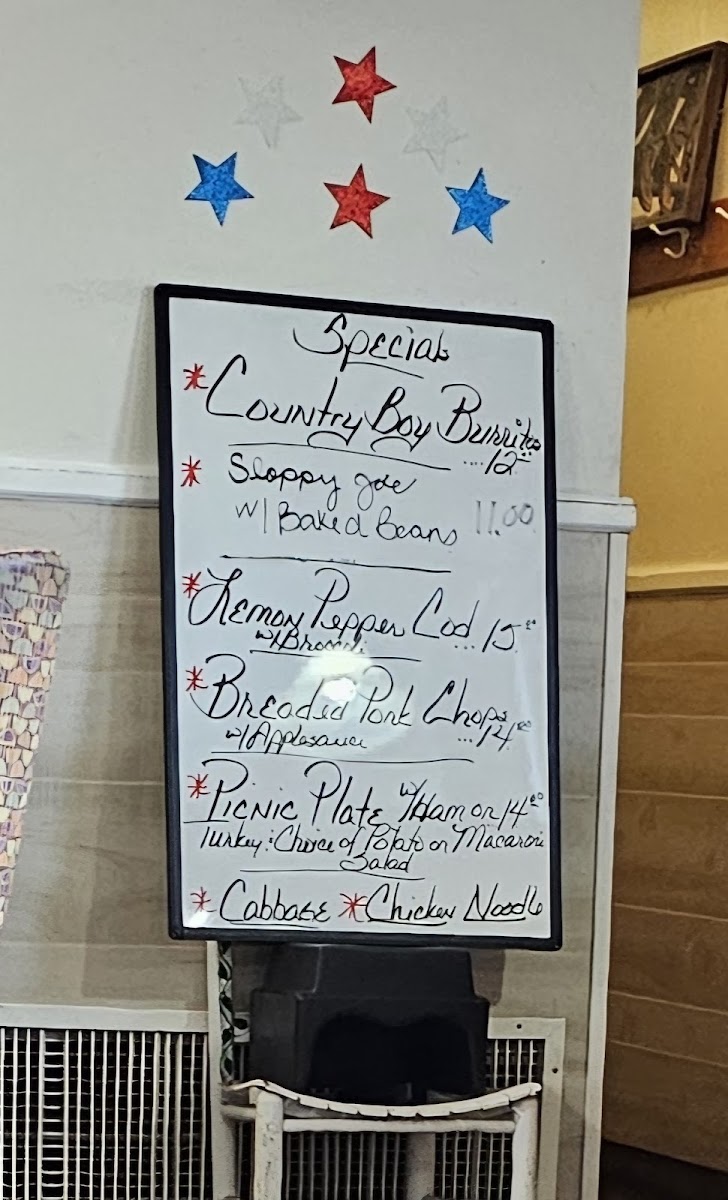 Specials
* Country Boy Burritos
.... 12
* Sloppy Joe
w/ Baked Beans 11.00
* Lemon Pepper Cod
... 15.00
w/
* Breaded Pork Chops
w/ Applesauce ... 14.00
* Picnic Plate w/ Ham or 14.00
Turkey: Choice of Potato or Macaroni
Salad
* Cabbage * Chicken Noodle